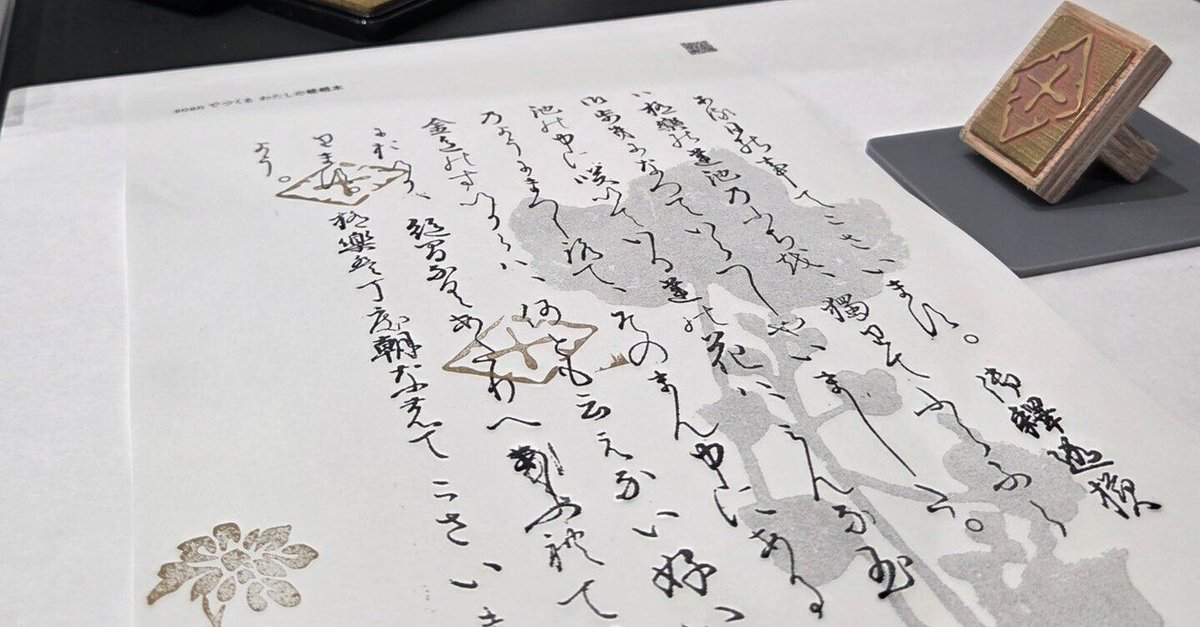 soan でつくる わたしの嵯峨本
ある日の事でございます。御釋迦様
ハ極樂の蓮池乃ふちを、獨里でふらふら
御歩きになつていらつしやいました。
池の中に咲いている蓮の花ハみんな玉
乃ようにまつ白で、そのまん中にある
金色のずいからハ、何とも云えない好い
にほひが、絶間なくあたりへ溢れて
里ます。極樂は丁度朝なのでございま
よう。